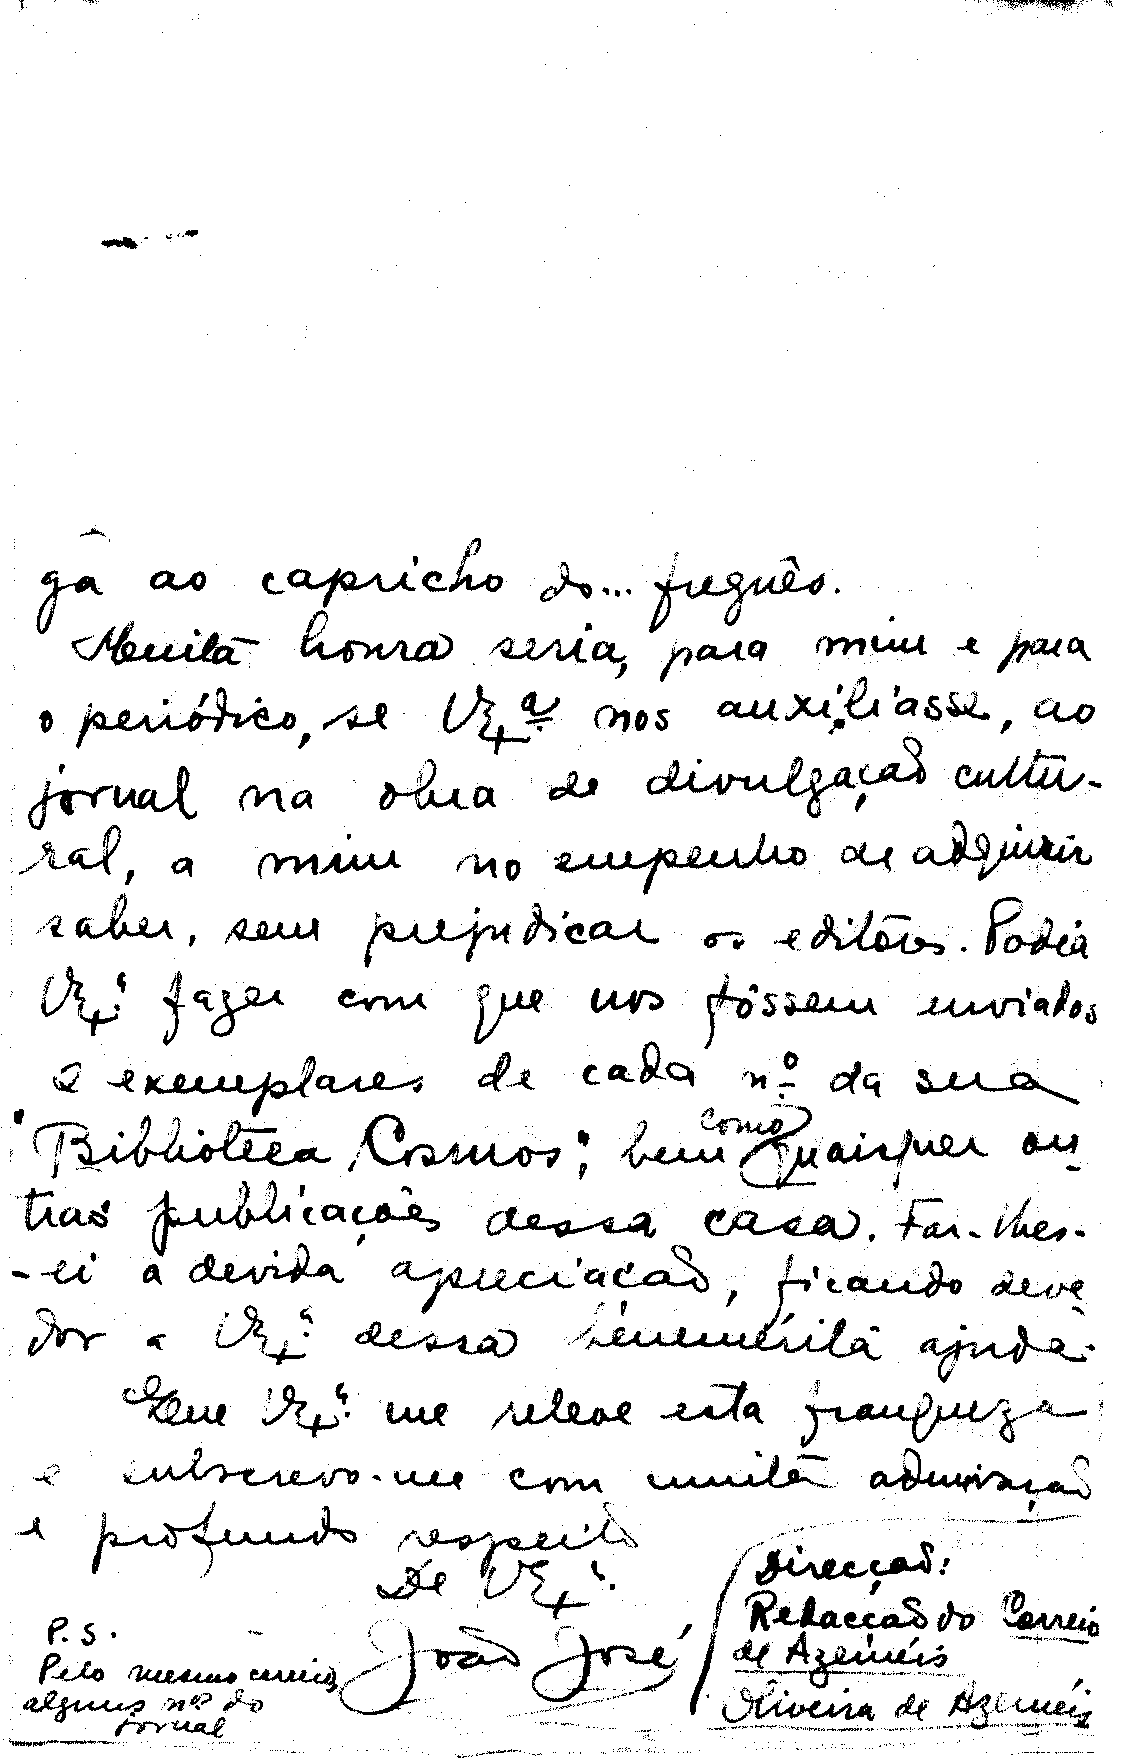 gã ao capricho do... freguês.
Muita honra seria, para mim e para
o periódico, se V. Ex.ª nos auxiliasse, ao
jornal na obra de divulgação cultu-
ral, a mim no empenho de adquirir
saber, sem prejudicar os editôres. Podia
V. Ex.ª fazer com que nos fôssem enviados
2 exemplares de cada n.º da sua
"Biblioteca Cosmos", bem como quaisquer ou-
tras publicações dessa casa. Far-lhes-
-ei a devida apreciação, ficando deve-
dor a V. Ex.ª dessa benemérita ajuda.
Que V. Ex.ª me releve esta franqueza
e subscrevo-me com muita admiração
e profundo respeito
De V. Ex.ª
João José
Direcção:
Redacção do Correio
de Azeméis
Oliveira de Azeméis
P.S.
Pelo mesmo correio
alguns nºs do
jornal